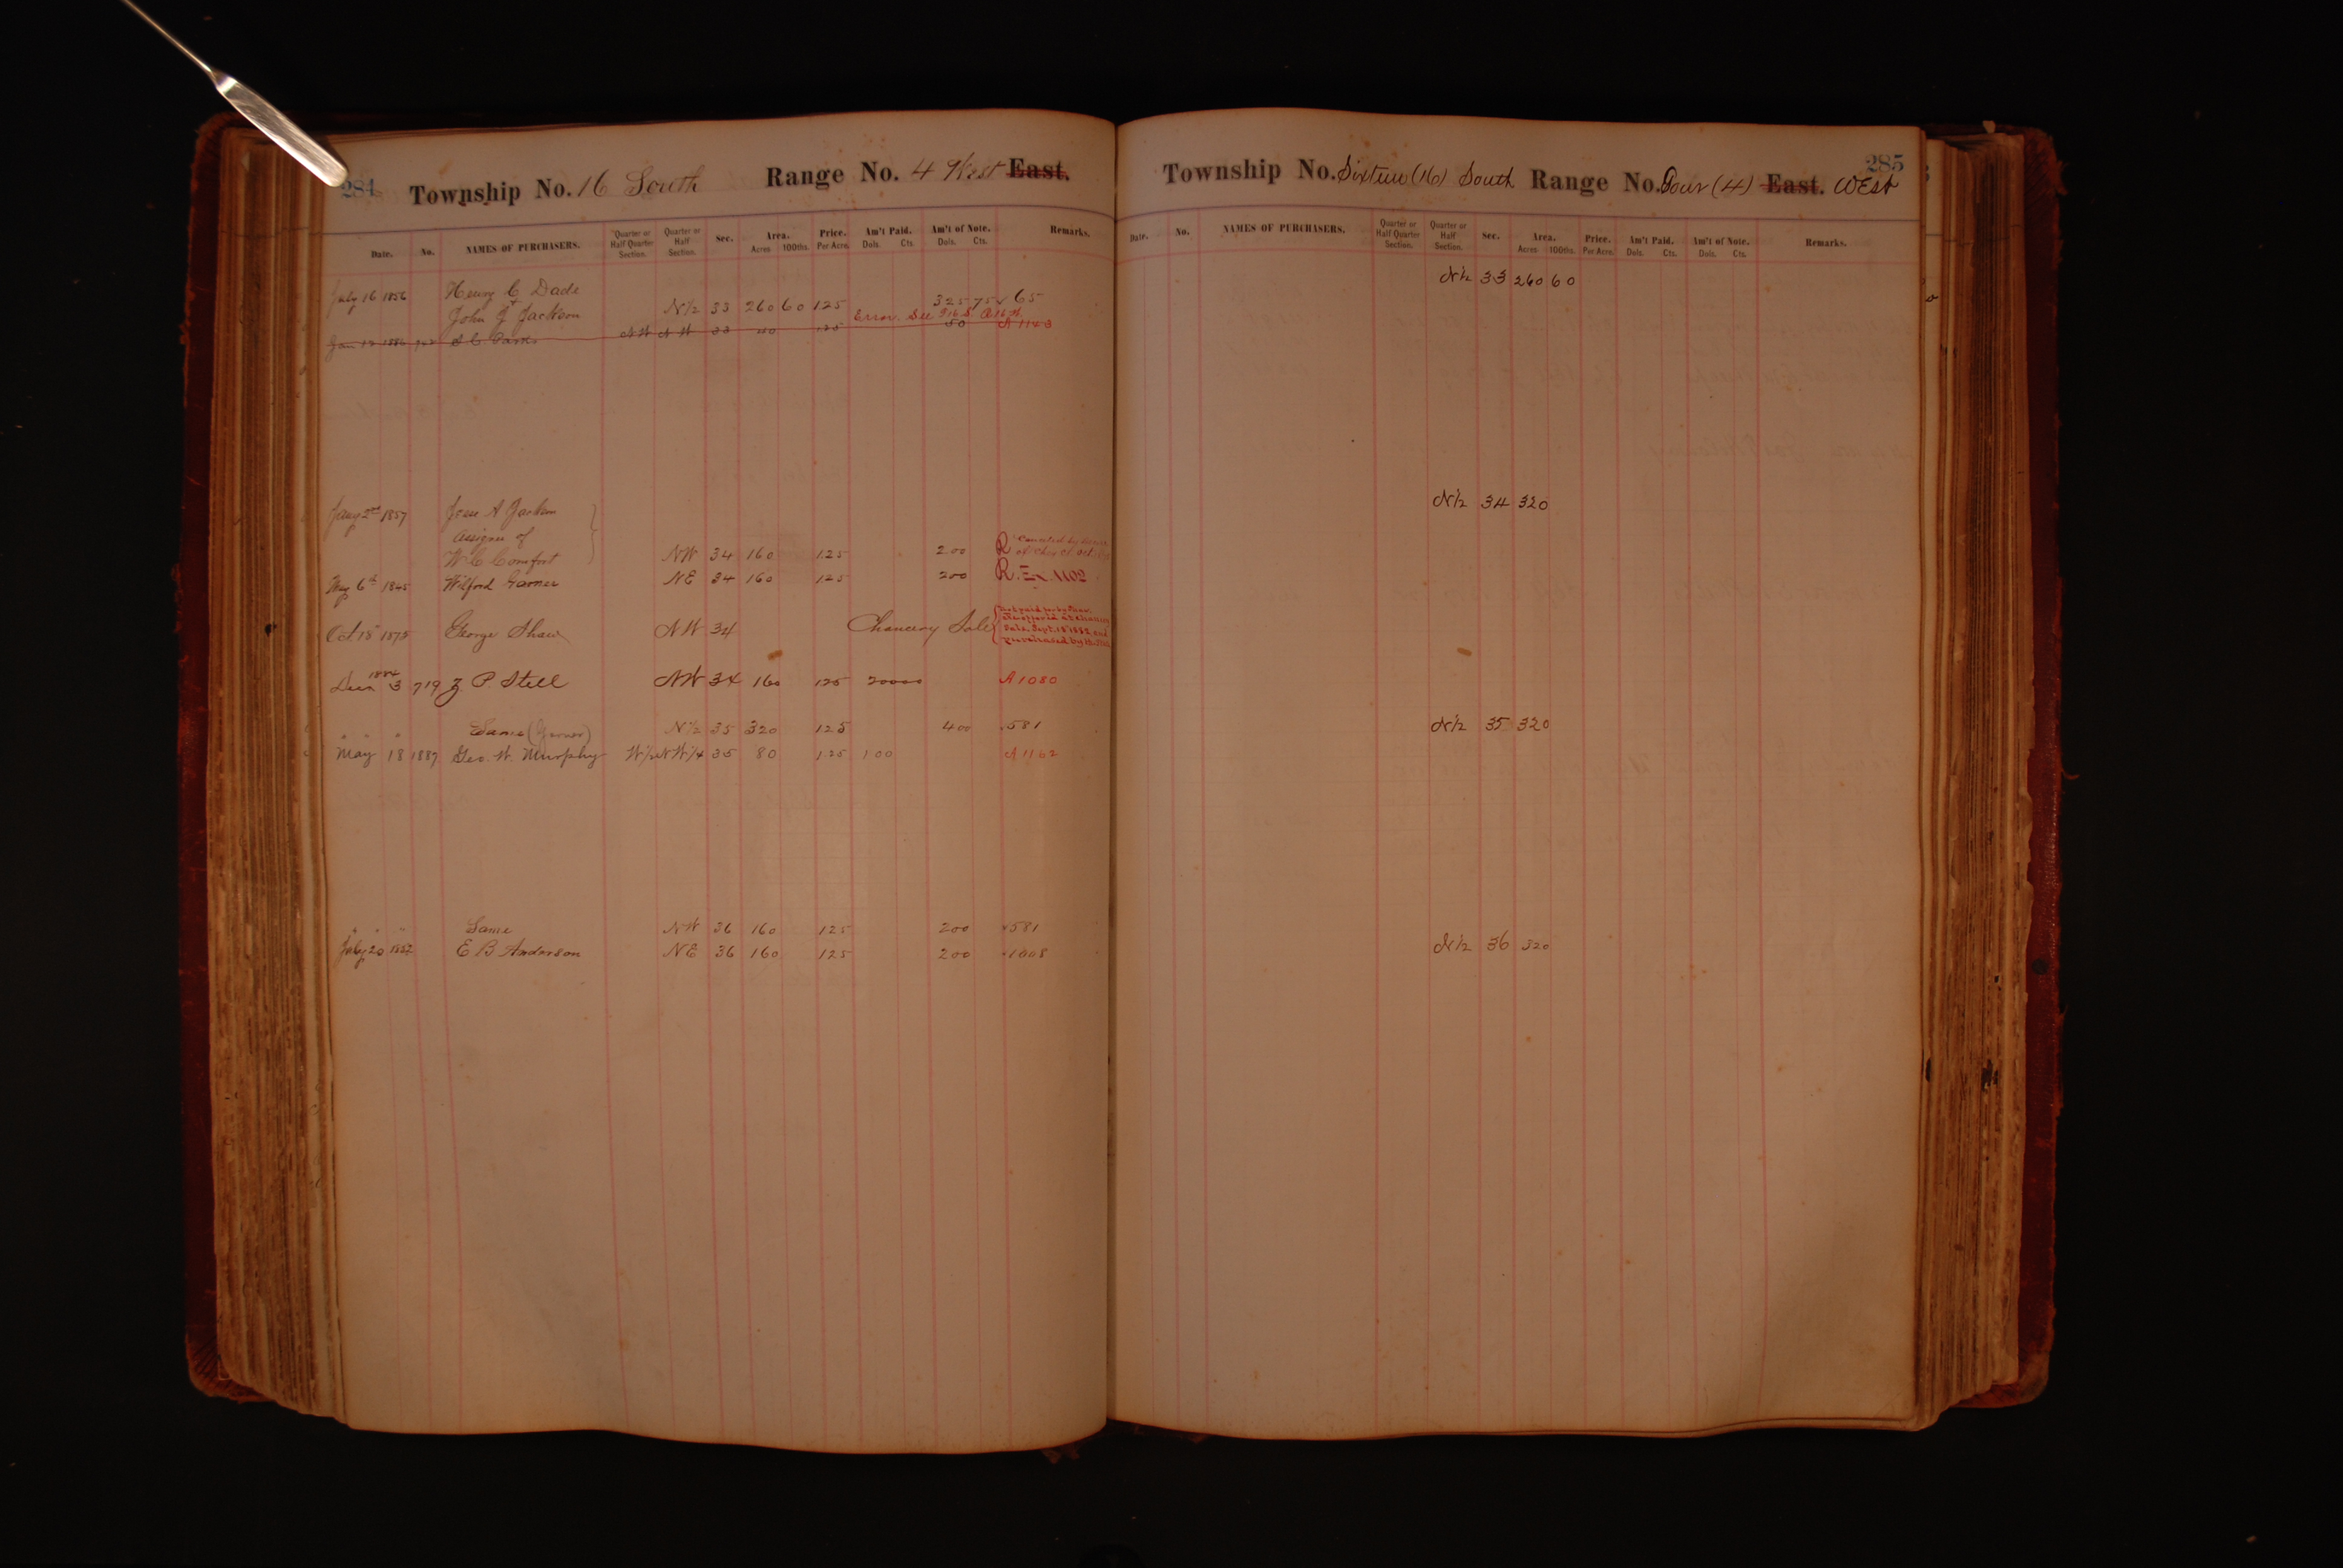 284 Township No. 16 South Range No. 4 West East.
Date. No. NAMES OF PURCHASERS. Quarter or Half Quarter Section. Quarter or Half Section. Sec. Area. Acres 100ths. Price. Per Acre. Am't Paid. Dols. Cts. Am't of Note. Dols. Cts. Remarks.
July 16 1856 Henry C Dade
John J Jackson N/2 33 260 60 125 325 75 65
Error. See T16 S.
Jan 12 1886 S C Parks NW NW 33 40 125 50 A 1143
Jany 2nd 1857 Jesse A Jackson
assignee of
W C Comfort NW 34 160 125 200 R
6th 1845 Wilford Garner NE 34 160 125 200 R. Ex. 1102
Oct 18 1875 George Shaw NW 34 Chancery Sale
Sept. 18 1882 and
purchased by
1884
3 719 Z. P. Stell NW 34 160 125 200 00 A 1080
" " " Same (Garner) N/2 35 320 125 400 581
May 18 1887 Geo. W. Murphy W/2 NW/4 35 80 125 100 A 1162
" " " Same NW 36 160 125 200 581
July 20 1852 E B Anderson NE 36 160 125 200 1008
285
Township No. Sixteen (16) South Range No. Four (4) East. West
Date. No. NAMES OF PURCHASERS. Quarter or Half Quarter Section. Quarter or Half Section. Sec. Area. Acres 100ths. Price. Per Acre. Am't Paid. Dols. Cts. Am't of Note. Dols. Cts. Remarks.
N/2 33 260 60
N/2 34 320
N/2 35 320
N/2 36 320